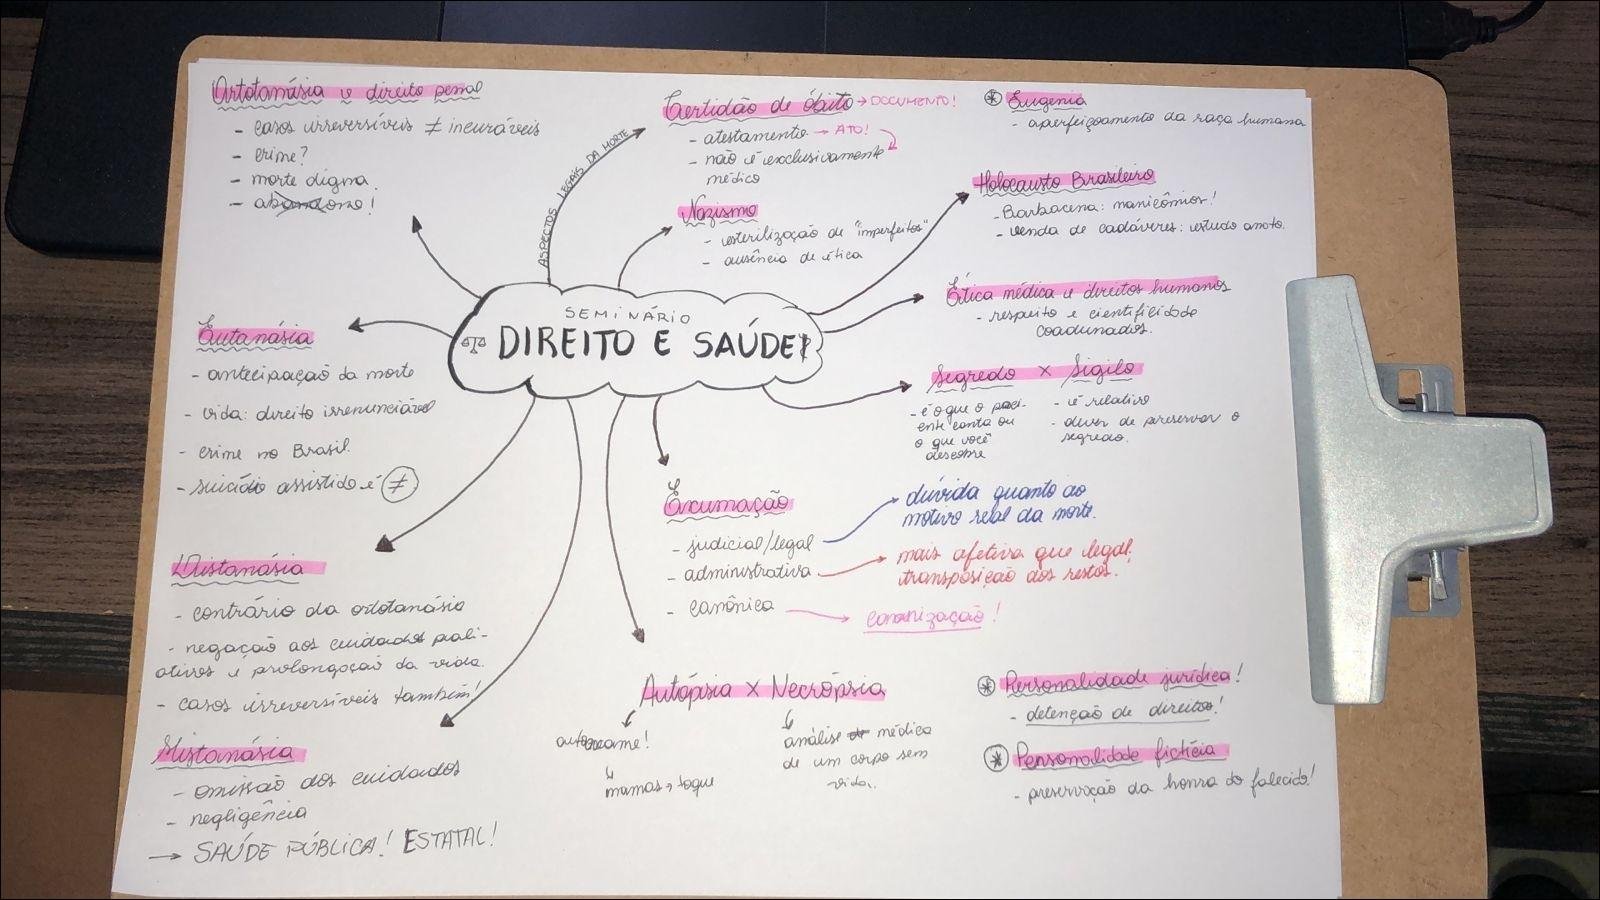 SEMINÁRIO
DIREITO E SAÚDE
Ortotanásia e direito penal
- casos irreversíveis ≠ incuráveis
- crime?
- morte digna
- abandono!
ASPECTOS LEGAIS DA MORTE
Certidão de óbito → DOCUMENTO!
- atestamento → ATO!
- não é exclusivamente
médico
Nazismo
- esterilização de "imperfeitos"
- ausência de ética
* Eugenia
- aperfeiçoamento da raça humana
Holocausto Brasileiro
- Barbacena: manicômios!
- venda de cadáveres: estudo anato.
Ética médica e direitos humanos
- respeito e cientificidade
coadunados.
Segredo x Sigilo
- é o que o paci-
ente conta ou
o que você
descobre
- é relativo
- dever de preservar o
segredo.
Exumação
- judicial/legal
dúvida quanto ao
motivo real da morte.
- administrativa
mais afetiva que legal!
transposição dos restos.
- canônica
canonização!
Autópsia x Necrópsia
autoexame!
mamas, toque
análise médica
de um corpo sem
vida.
* Personalidade jurídica!
- detenção de direitos!
* Personalidade fictícia
- preservação da honra do falecido!
Eutanásia
- antecipação da morte
- vida: direito irrenunciável
- crime no Brasil.
- suicídio assistido é ≠
Distanásia
- contrário da ortotanásia
- negação aos cuidados pali-
ativos e prolongação da vida.
- casos irreversíveis também!
Mistanásia
- omissão dos cuidados
- negligência
→ SAÚDE PÚBLICA! ESTATAL!